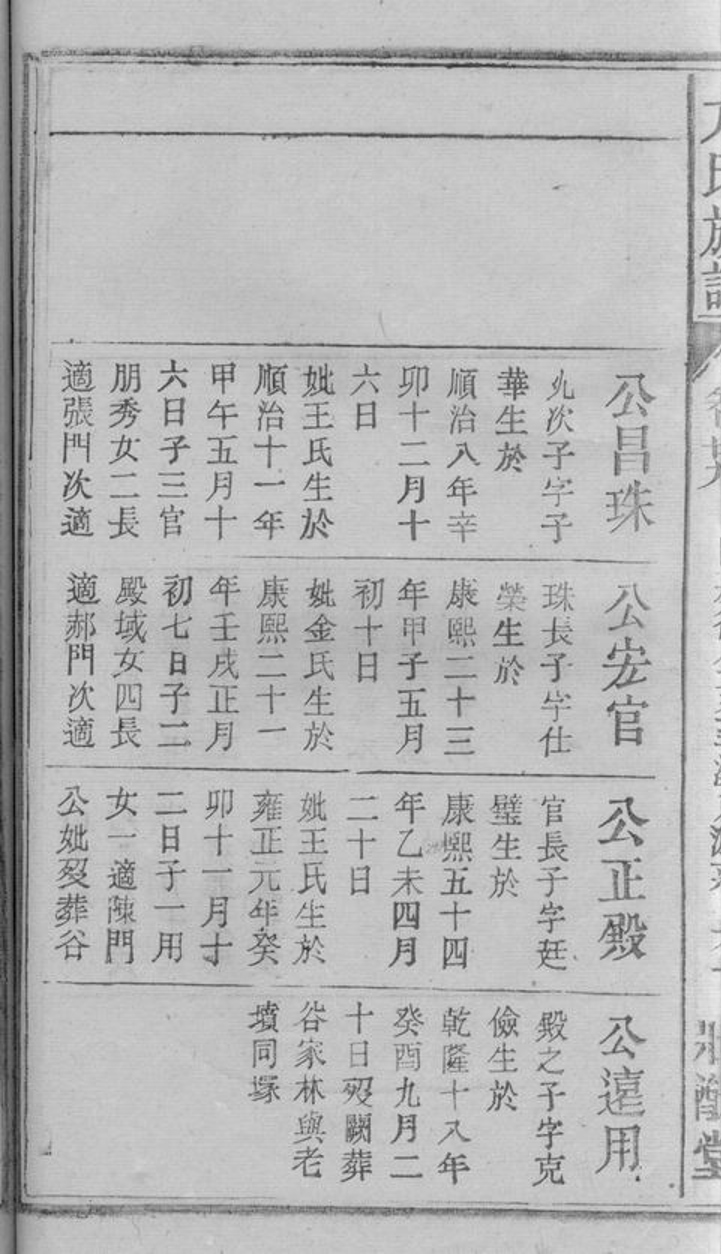 氏族譜
公昌珠
次子字子
華生於
順治八年辛
卯十二月十
六日
妣王氏生於
順治十一年
甲午五月十
六日子三官
朋秀女二長
適張門次適
公宏官
珠長子字仕
榮生於
康熙二十三
年甲子五月
初十日
妣金氏生於
康熙二十一
年壬戌正月
初七日子二
殿域女四長
適郝門次適
公正殿
官長子字廷
璧生於
康熙五十四
年乙未四月
二十日
妣王氏生於
雍正元年癸
卯十一月十
二日子一用
女一適陳門
公妣歿葬谷
公遠用
殿之子字克
儉生於
乾隆十八年
癸酉九月二
十日歿闕葬
谷家林與老
墳同塚